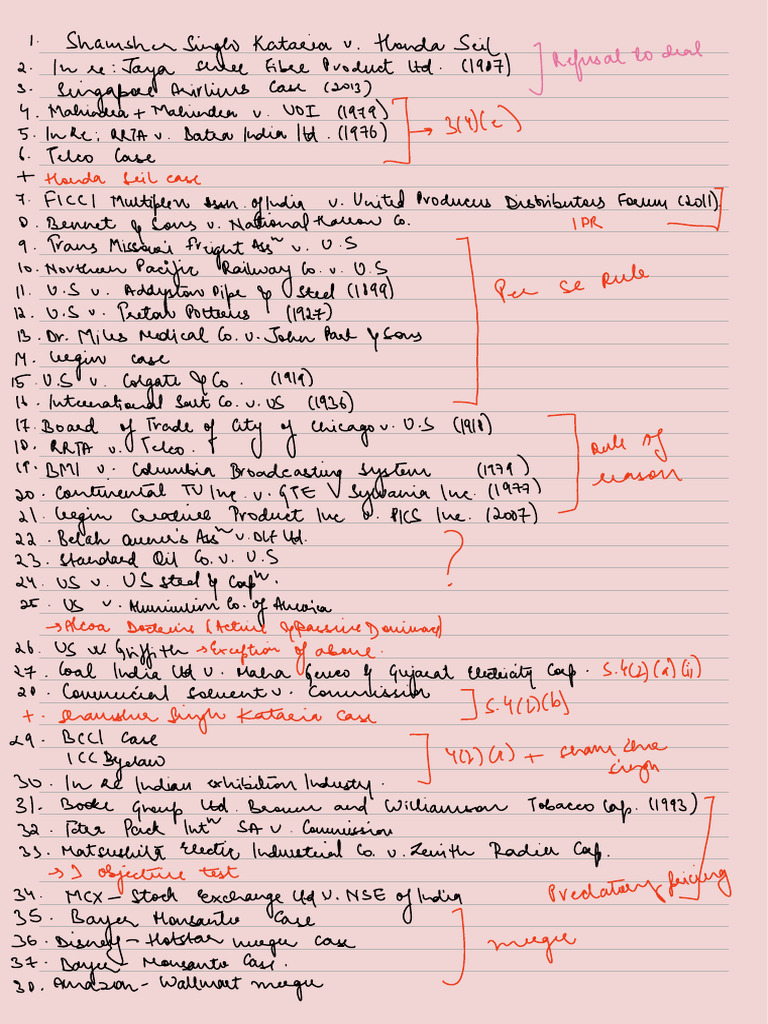 1. Shamsher Singh Kataria v. Honda Seil
2. In re: Jaya Shree Fibre Product Ltd. (1987) Refusal to deal
3. Singapore Airlines Case (2013)
4. Mahindra + Mahindra v. UOI (1979)
5. In Re: RRTA v. Batra India ltd. (1976) → 3(4)(c)
6. Telco Case
+ Honda Seil case
7. FICCI Multiplex Assn. of India v. United Producers Distributors Forum (2011)
8. Bennet & Sons v. National Harrow Co. IPR
9. Trans Missouri Freight Assn v. U.S
10. Northern Pacific Railway Co. v. U.S
11. U.S v. Addyston Pipe & Steel (1899) Per se Rule
12. U.S v. Pretan Potteries (1927)
13. Dr. Miles Medical Co. v. John Park & Sons
14. Leegin case
15. U.S v. Colgate & Co. (1919)
16. International Salt Co. v. US (1936)
17. Board of Trade of City of Chicago v. U.S (1918)
18. RRTA v. Telco. Rule of
19. BMI v. Columbia Broadcasting System (1979) reason
20. Continental TV Inc. v. GTE Sylvania Inc. (1977)
21. Leegin Creative Product Inc v. PICS Inc. (2007)
22. Belah owner's Assn v. DLF Ltd.
23. Standard Oil Co. v. U.S ?
24. US v. US Steel & Corpn.
25. US v. Aluminium Co. of America
→ Alcoa Doctrine (Active & Passive Dominance)
26. US v. Griffith → Exception of above.
27. Coal India Ltd v. Maha Genco & Gujarat Electricity Corp. S.4(2)(a)(ii)
28. Commercial Solvent v. Commission
+ Shamsher Singh Kataria Case S.4(2)(b)
29. BCCI Case
ICC Byelaw 4(2)(c) + Sham sher singh
30. In Re Indian exhibition Industry.
31. Booke Group Ltd. Brown and Williamson Tobacco Cop. (1993)
32. Peter Pack Intn SA v. Commission
33. Matsushita Electric Industrial Co. v. Zenith Radier Corp.
→ objective test
34. MCX – Stock Exchange Ltd v. NSE of India Predatory pricing
35. Bayer Monsanto Case
36. Disney – Hotstar merger case merger
37. Bayer – Monsanto Case.
38. Amazon – Wallmart merger